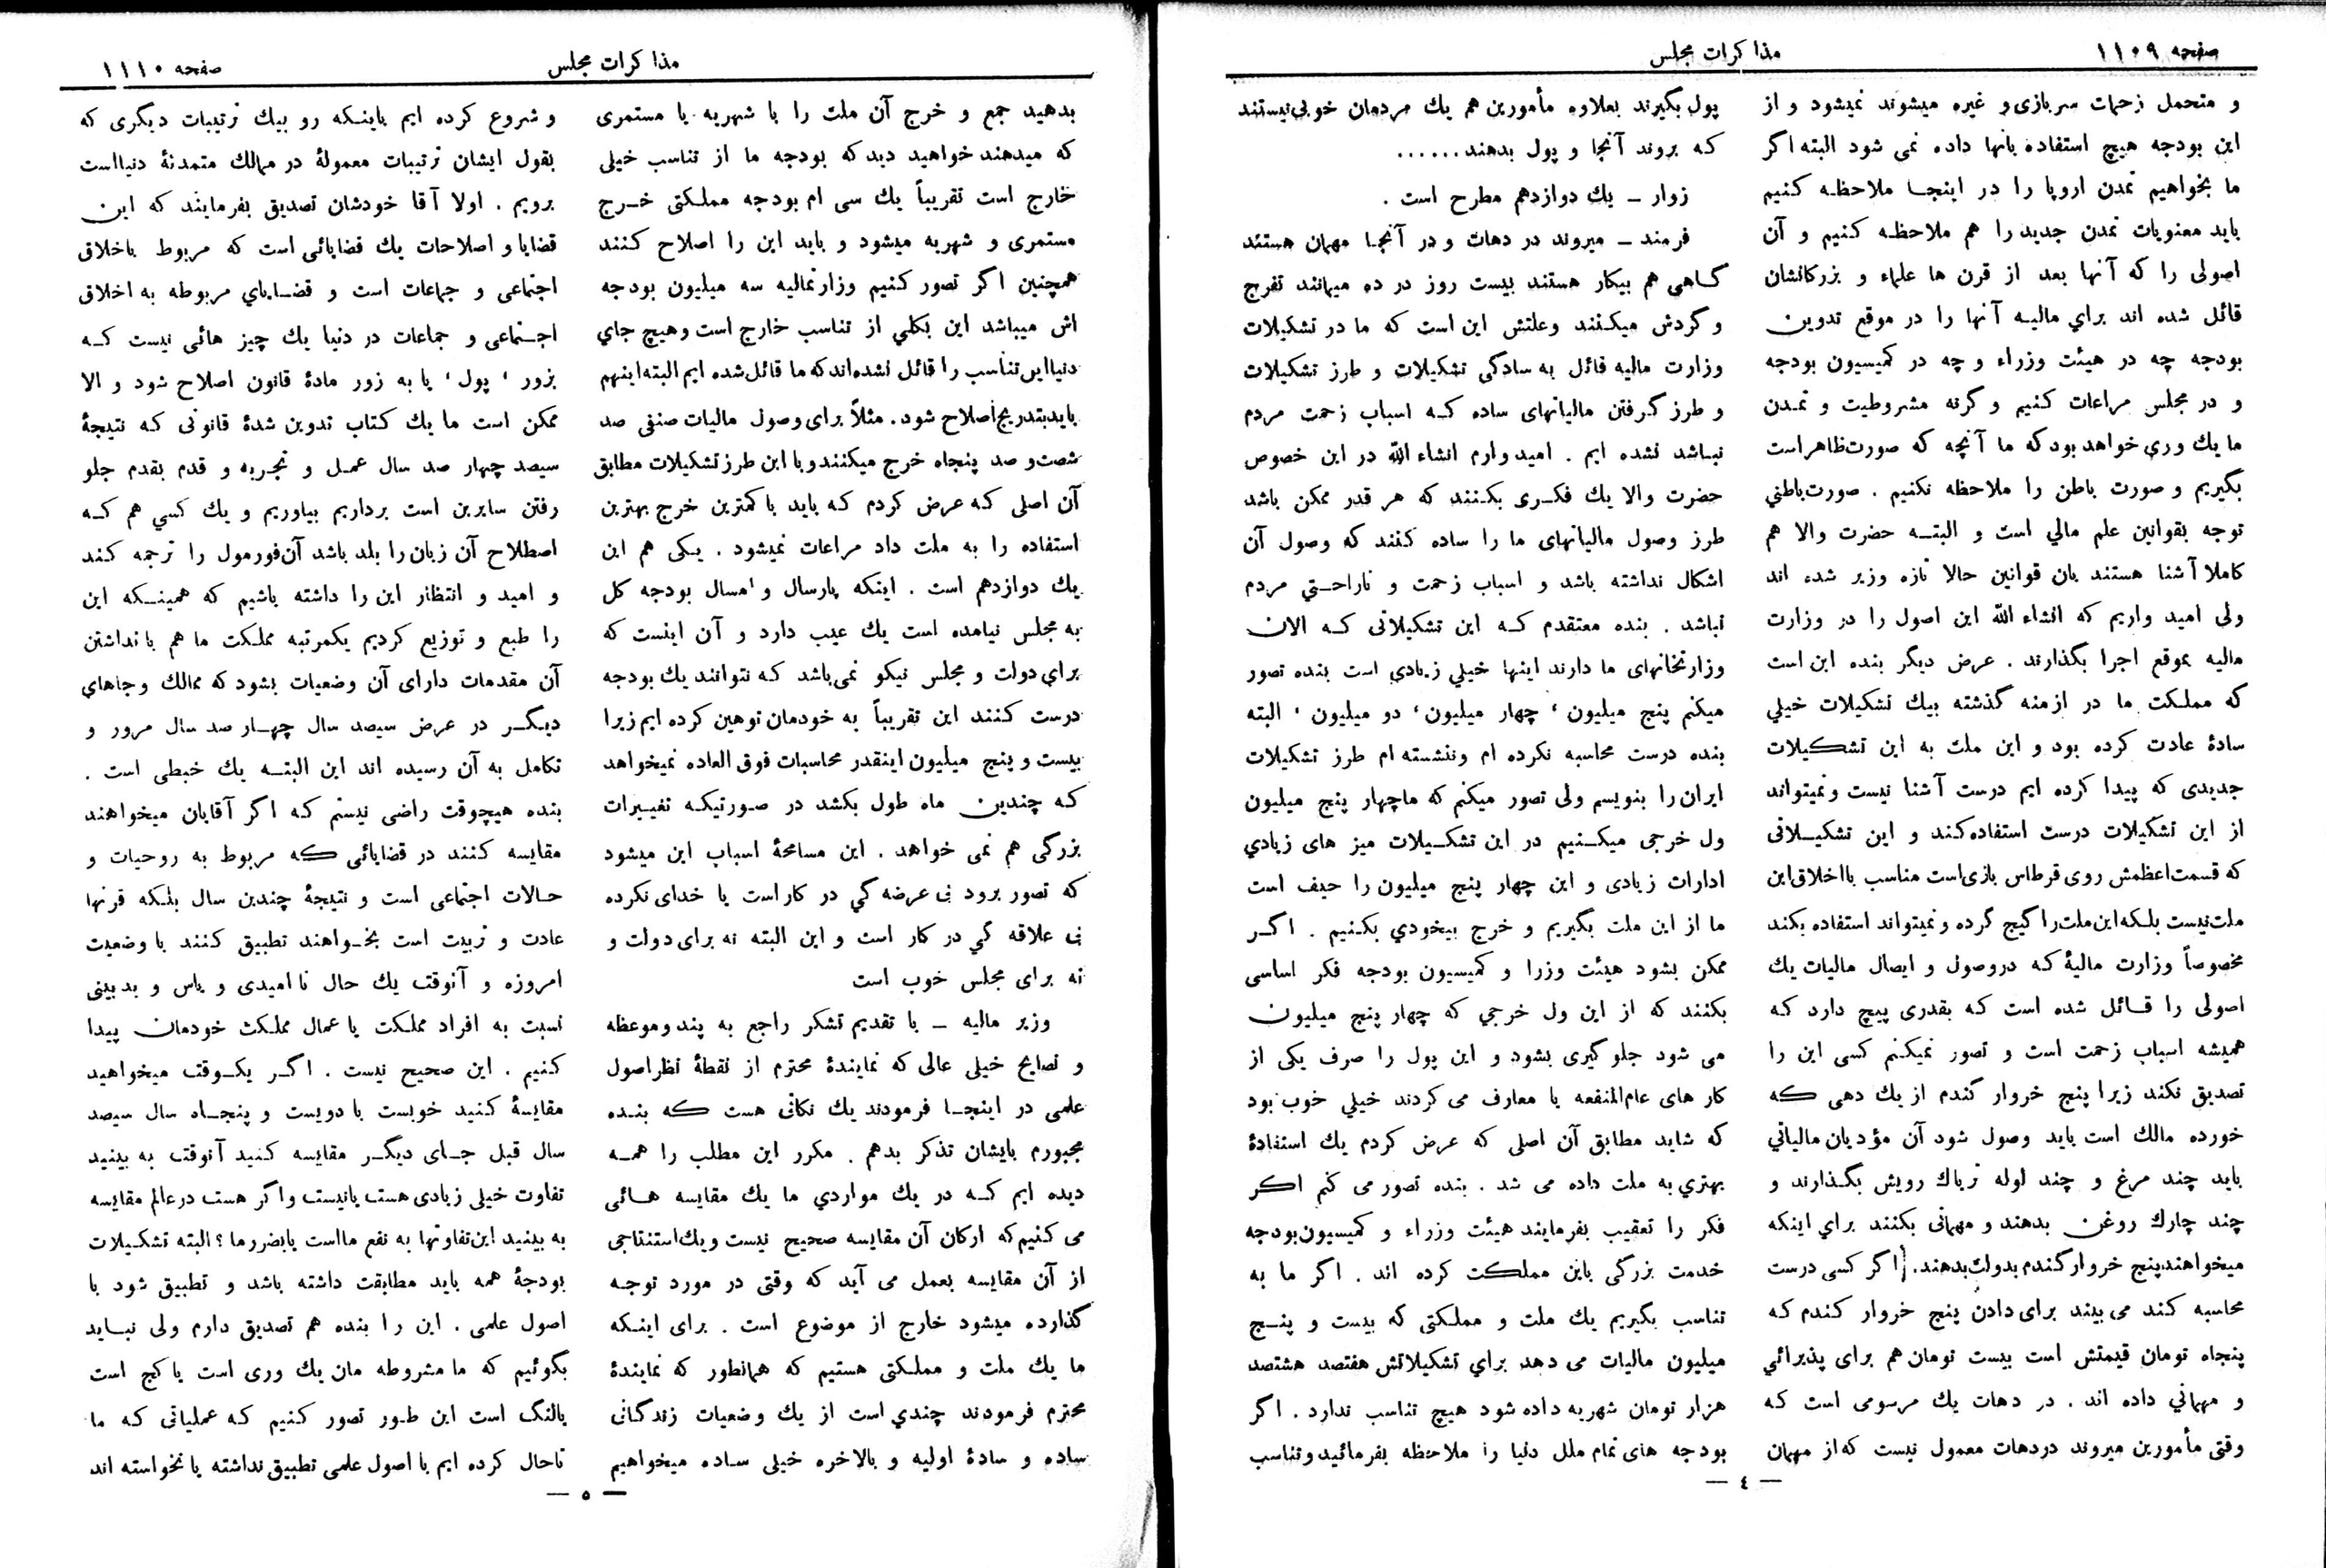 صفحه ۱۱۰۹
مذاکرات مجلس
و متحمل زحمات سربازی و غیره میشوند نمیشود و از
این بودجه هیچ استفاده بآنها داده نمی شود البته اگر
ما بخواهیم تمدن اروپا را در اینجا ملاحظه کنیم
باید معنویات تمدن جدید را هم ملاحظه کنیم و آن
اصولی را که آنها بعد از قرن ها علماء و بزرگانشان
قائل شده اند برای مالیه آنها را در موقع تدوین
بودجه چه در هیئت وزراء و چه در کمیسیون بودجه
و در مجلس مراعات کنیم و گرنه مشروطیت و تمدن
ما یك وری خواهد بود که ما آنچه که صورت ظاهر است
بگیریم و صورت باطن را ملاحظه نکنیم . صورت باطنی
توجه بقوانین علم مالی است و البته حضرت والا هم
کاملا آشنا هستند بآن قوانین حالا تازه وزیر شده اند
ولی امید واریم که انشاء الله این اصول را در وزارت
مالیه بموقع اجرا بگذارند . عرض دیگر بنده این است
که مملکت ما در ازمنه گذشته بیك تشکیلات خیلی
سادۀ عادت کرده بود و این ملت به این تشکیلات
جدیدی که پیدا کرده ایم درست آشنا نیست و نمیتواند
از این تشکیلات درست استفاده کند و این تشکیلاتی
که قسمت اعظمش روی قرطاس بازی است مناسب با اخلاق این
ملت نیست بلکه این ملت را گیج کرده و نمیتواند استفاده بکند
مخصوصاً وزارت مالیۀ که در وصول و ایصال مالیات یك
اصولی را قائل شده است که بقدری پیچ دارد که
همیشه اسباب زحمت است و تصور نمیکنم کسی این را
تصدیق نکند زیرا پنج خروار گندم از یك دهی که
خورده مالك است باید وصول شود آن مؤدیان مالیاتی
باید چند مرغ و چند لوله تریاك رویش بگذارند و
چند چارك روغن بدهند و مهمانی بکنند برای اینکه
میخواهند پنج خروار گندم بدولت بدهند. اگر کسی درست
محاسبه کند می بیند برای دادن پنج خروار گندم که
پنجاه تومان قیمتش است بیست تومان هم برای پذیرائی
و مهمانی داده اند . در دهات یك مرسومی است که
وقتی مأمورین میروند در دهات معمول نیست که از مهمان
پول بگیرند بعلاوه مأمورین هم یك مردمان خوبی نیستند
که بروند آنجا و پول بدهند......
زوار ــ یك دوازدهم مطرح است .
فرمند ــ میروند در دهات و در آنجا مهمان هستند
گاهی هم بیکار هستند بیست روز در ده میمانند تفرج
و گردش میکنند و علتش این است که ما در تشکیلات
وزارت مالیه قائل به سادگی تشکیلات و طرز تشکیلات
و طرز گرفتن مالیاتهای ساده که اسباب زحمت مردم
نباشد نشده ایم . امیدوارم انشاء الله در این خصوص
حضرت والا یك فکری بکنند که هر قدر ممکن باشد
طرز وصول مالیاتهای ما را ساده کنند که وصول آن
اشکال نداشته باشد و اسباب زحمت و ناراحتی مردم
نباشد . بنده معتقدم که این تشکیلاتی که الان
وزارتخانهای ما دارند اینها خیلی زیادی است بنده تصور
میکنم پنج میلیون ، چهار میلیون ، دو میلیون ، البته
بنده درست محاسبه نکرده ام و ننشسته ام طرز تشکیلات
ایران را بنویسم ولی تصور میکنم که ما چهار پنج میلیون
ول خرجی میکنیم در این تشکیلات میز های زیادی
ادارات زیادی و این چهار پنج میلیون را حیف است
ما از این ملت بگیریم و خرج بیخودی بکنیم . اگر
ممکن بشود هیئت وزرا و کمیسیون بودجه فکر اساسی
بکنند که از این ول خرجی که چهار پنج میلیون
می شود جلو گیری بشود و این پول را صرف یکی از
کار های عام المنفعه یا معارف می کردند خیلی خوب بود
که شاید مطابق آن اصلی که عرض کردم یك استفادۀ
بهتری به ملت داده می شد . بنده تصور می کنم اگر
فکر را تعقیب بفرمایند هیئت وزراء و کمیسیون بودجه
خدمت بزرگی باین مملکت کرده اند . اگر ما به
تناسب بگیریم یك ملت و مملکتی که بیست و پنج
میلیون مالیات می دهد برای تشکیلاتش هفتصد هشتصد
هزار تومان شهریه داده شود هیچ تناسب ندارد . اگر
بودجه های تمام ملل دنیا را ملاحظه بفرمائید و تناسب
— ٤ —
مذاکرات مجلس
صفحه ۱۱۱۰
بدهید جمع و خرج آن ملت را با شهریه یا مستمری
که میدهند خواهید دید که بودجه ما از تناسب خیلی
خارج است تقریباً یك سی ام بودجه مملکتی خرج
مستمری و شهریه میشود و باید این را اصلاح کنند
همچنین اگر تصور کنیم وزارتمالیه سه میلیون بودجه
اش میباشد این بکلی از تناسب خارج است و هیچ جای
دنیا این تناسب را قائل نشده اند که ما قائل شده ایم البته اینهم
باید بتدریج اصلاح شود . مثلاً برای وصول مالیات صنفی صد
شصت و صد پنجاه خرج میکنند و با این طرز تشکیلات مطابق
آن اصلی که عرض کردم که باید با کمترین خرج بهترین
استفاده را به ملت داد مراعات نمیشود . یکی هم این
یك دوازدهم است . اینکه پارسال و امسال بودجه کل
به مجلس نیامده است یك عیب دارد و آن اینست که
برای دولت و مجلس نیکو نمی باشد که نتوانند یك بودجه
درست کنند این تقریباً به خودمان توهین کرده ایم زیرا
بیست و پنج میلیون اینقدر محاسبات فوق العاده نمیخواهد
که چندین ماه طول بکشد در صورتیکه تغییرات
بزرگی هم نمی خواهد . این مسامحۀ اسباب این میشود
که تصور برود بی عرضه گی در کار است یا خدای نکرده
بی علاقه گی در کار است و این البته نه برای دولت و
نه برای مجلس خوب است
وزیر مالیه ــ با تقدیم تشکر راجع به پند و موعظه
و نصایح خیلی عالی که نمایندۀ محترم از نقطۀ نظر اصول
علمی در اینجا فرمودند یك نکاتی هست که بنده
مجبورم بایشان تذکر بدهم . مکرر این مطلب را همه
دیده ایم که در یك مواردی ما یك مقایسه هائی
می کنیم که ارکان آن مقایسه صحیح نیست و یك استنتاجی
از آن مقایسه بعمل می آید که وقتی در مورد توجه
گذارده میشود خارج از موضوع است . برای اینکه
ما یك ملت و مملکتی هستیم که همانطور که نمایندۀ
محترم فرمودند چندی است از یك وضعیات زندگانی
ساده و سادۀ اولیه و بالاخره خیلی ساده میخواهیم
و شروع کرده ایم باینکه رو بیك ترتیبات دیگری که
بقول ایشان ترتیبات معمولۀ در ممالك متمدنۀ دنیا است
برویم . اولا آقا خودشان تصدیق بفرمایند که این
قضایا و اصلاحات یك قضایائی است که مربوط باخلاق
اجتماعی و جماعات است و قضایای مربوطه به اخلاق
اجتماعی و جماعات در دنیا یك چیز هائی نیست که
بزور ، پول ، یا به زور مادۀ قانون اصلاح شود و الا
ممکن است ما یك کتاب تدوین شدۀ قانونی که نتیجۀ
سیصد چهار صد سال عمل و تجربه و قدم بقدم جلو
رفتن سایرین است برداریم بیاوریم و یك کسی هم که
اصطلاح آن زبان را بلد باشد آن فورمول را ترجمه کند
و امید و انتظار این را داشته باشیم که همینکه این
را طبع و توزیع کردیم یکمرتبه مملکت ما هم با نداشتن
آن مقدمات دارای آن وضعیات بشود که ممالك و جاهای
دیگر در عرض سیصد سال چهار صد سال مرور و
تکامل به آن رسیده اند این البته یك خبطی است .
بنده هیچوقت راضی نیستم که اگر آقایان میخواهند
مقایسه کنند در قضایائی که مربوط به روحیات و
حالات اجتماعی است و نتیجۀ چندین سال بلکه قرنها
عادت و تربیت است بخواهند تطبیق کنند با وضعیت
امروزه و آنوقت یك حال نا امیدی و یاس و بد بینی
نسبت به افراد مملکت یا عمال مملکت خودمان پیدا
کنیم . این صحیح نیست . اگر یکوقت میخواهید
مقایسۀ کنید خوبست با دویست و پنجاه سال سیصد
سال قبل جای دیگر مقایسه کنید آنوقت به بینید
تفاوت خیلی زیادی هست یا نیست و اگر هست در عالم مقایسه
به بینید این تفاوتها به نفع ما است یا بضرر ما ؟ البته تشکیلات
بودجۀ همه باید مطابقت داشته باشد و تطبیق شود با
اصول علمی . این را بنده هم تصدیق دارم ولی نباید
بگوئیم که ما مشروطه مان یك وری است یا کج است
یا لنگ است این طور تصور کنیم که عملیاتی که ما
تاحال کرده ایم با اصول علمی تطبیق نداشته یا نخواسته اند
— ٥ —